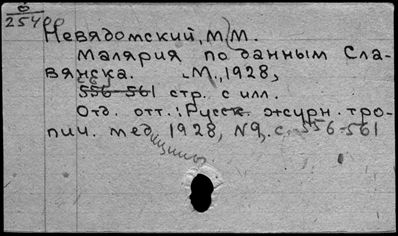 б
25400
Невядомский, М. М.
Малярия по данным Сла-
вянска. М., 1928,
556-561 стр. с илл.
Отд. отт.: Русск. журн. тро-
пич. медицины 1928, N9, с. 556-561